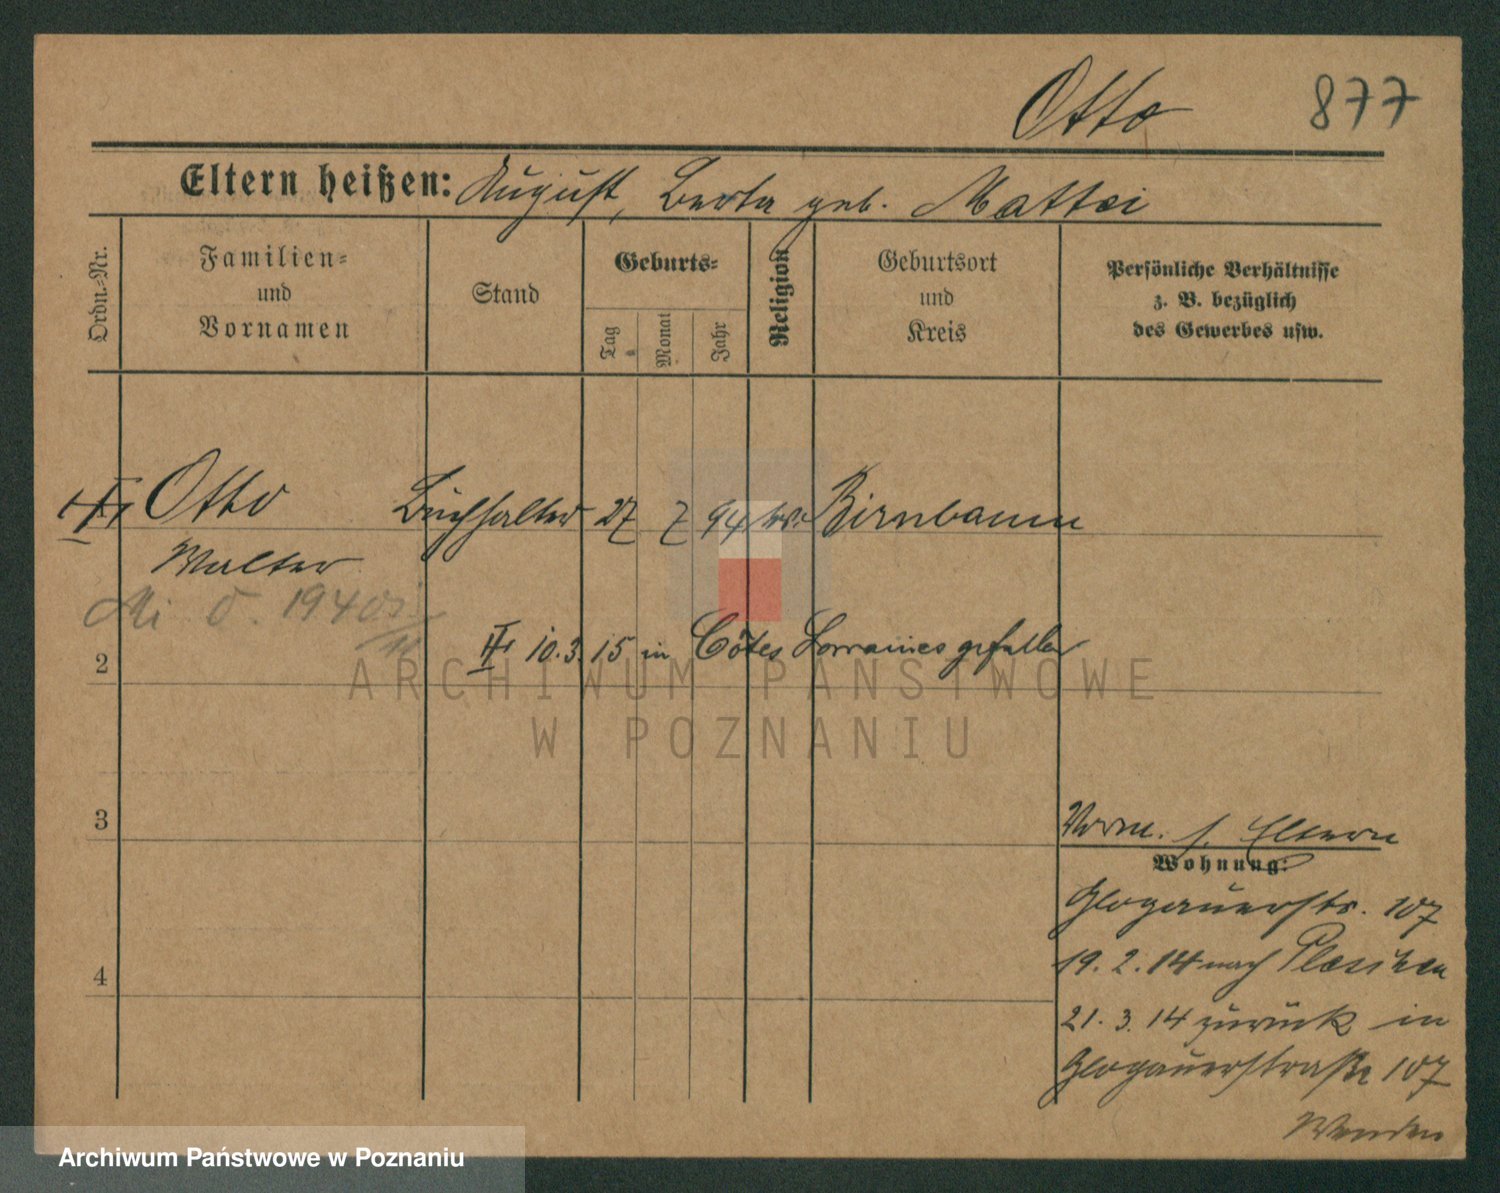 Otto 877
Eltern heißen: August, Berta geb. Mattei
Ordn.-Nr.
Familien-
und
Vornamen
Stand
Geburts-
Tag
Monat
Jahr
Religion
Geburtsort
und
Kreis
Persönliche Verhältnisse
z. B. bezüglich
des Gewerbes usw.
Otto Buchhalter 27 7 94 ev. Birnbaum
Walter
10.3.15 in Côtes Lorraines gefallen
2
3
Vorm. s. Eltern
Wohnung:
Glogauerstr. 107
19. 2. 14 nach Pleschen
4
21. 3. 14 zurück in
Glogauerstraße 107
Wenden
ARCHIWUM PAŃSTWOWE
W POZNANIU
Archiwum Państwowe w Poznaniu